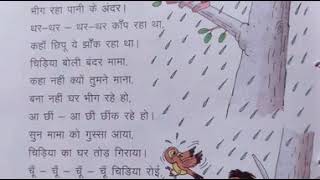 भीग रहा पानी के अंदर।
थर-थर – थर-थर काँप रहा था,
कहाँ छिपू ये झाँक रहा था।
चिड़िया बोली बंदर मामा,
कहा नहीं क्यों तुमने माना,
बना नहीं घर भीग रहे हो,
आ छीं - आ छी छींक रहे हो।
सुन मामा को गुस्सा आया,
चिड़िया का घर तोड़ गिराया।
चूँ - चूँ - चूँ - चूँ चिड़िया रोई,